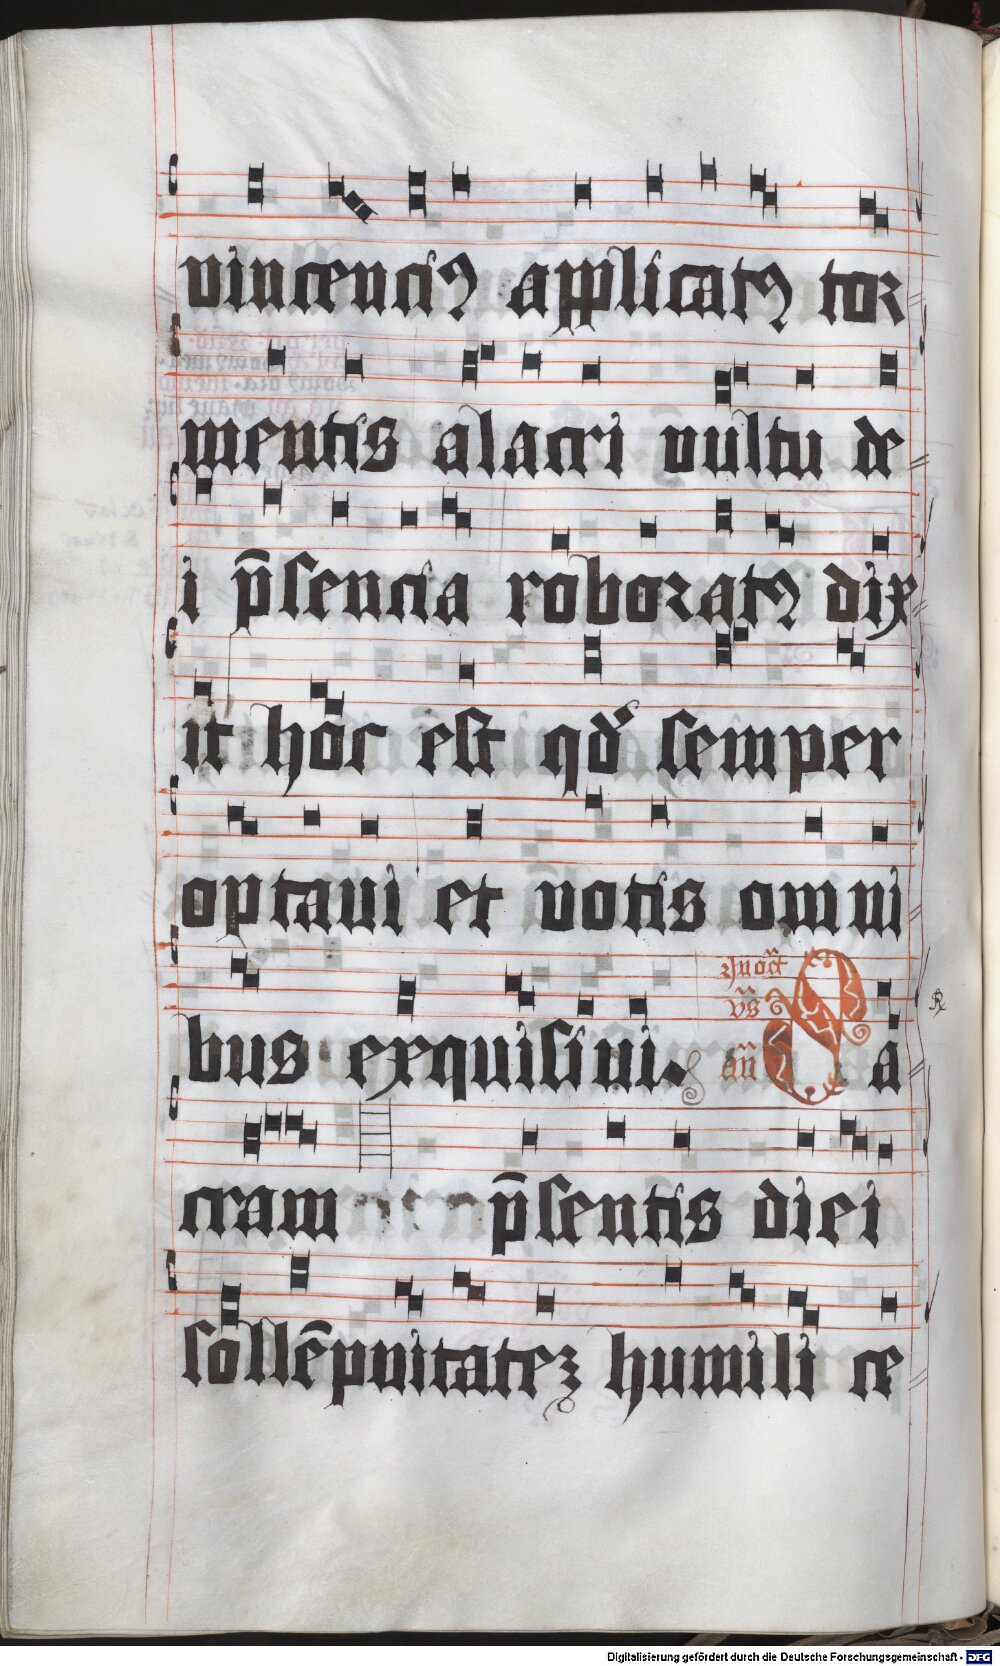 vincenciꝰ applicatꝰ tor
mentis alacri vultu de
i p̄sencia roboratꝰ dix
it hoc est qd̓ semper
optaui et votis omni
bus exquisiui. an̄ Sa
cram p̄sentis diei
sollēpnitatez humili ce
Digitalisierung gefördert durch die Deutsche Forschungsgemeinschaft - DFG